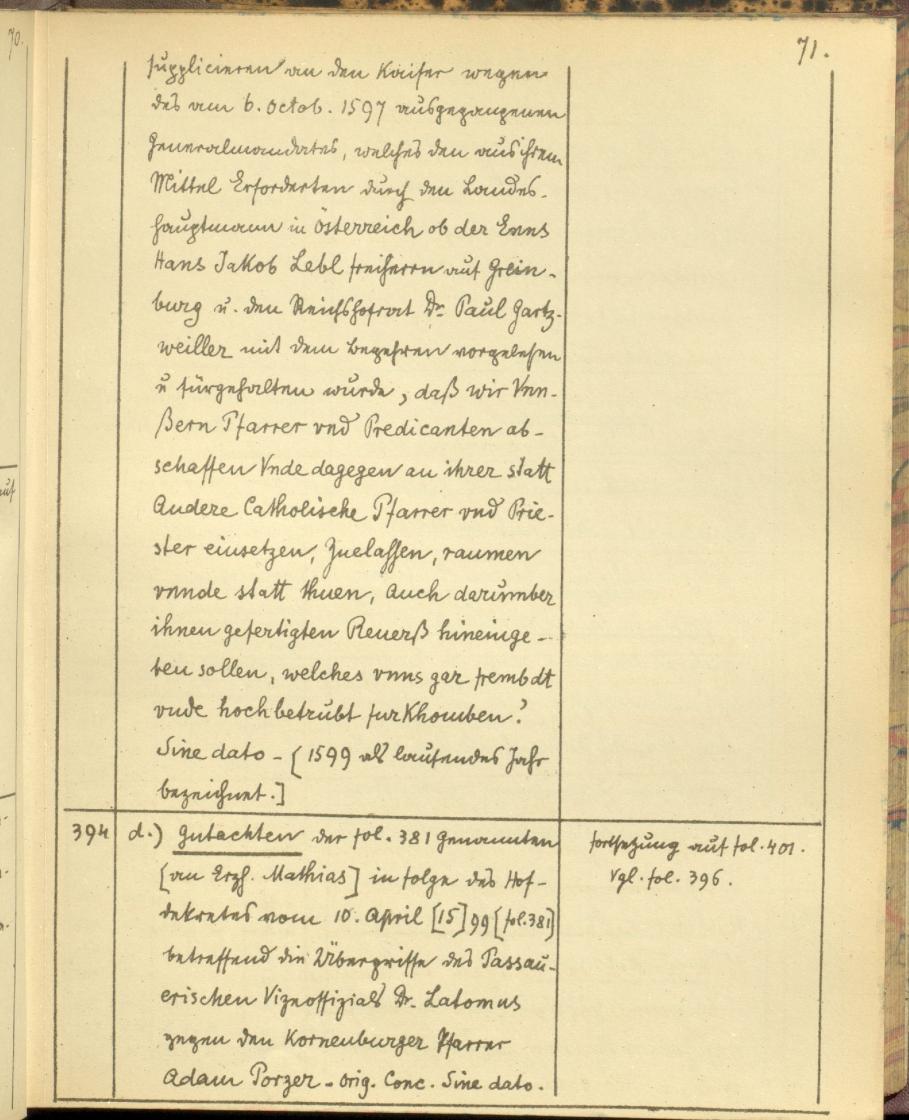 71.
supplicieren an den Kaiser wegen
des am 6. Octob. 1597 ausgegangenen
Generalmandates, welches den aus ihrem
Mittel Erforderten durch den Landes-
hauptmann in Österreich ob der Enns
Hans Jakob Lebl freiherrn auf Grein-
burg u. den Reichshofrat Dr. Paul Gartz-
weiller mit dem begehren vorgelesen
u fürgehalten wurde, daß wir Vnn-
ßern Pfarrer vnd Predicanten ab-
schaffen Vnde dagegen an ihrer statt
Andere Catholische Pfarrer vnd Prie-
ster einsetzen, Zuelassen, raumen
vnnde statt thuen, Auch darumber
ihnen gefertigten Reuerß hineinge-
ben sollen, welches vnns gar frembdt
vnde hochbetrubt furkhomben?
Sine dato - [1599 als laufendes Jahr
bezeichnet.]
394 d.) Gutachten der fol. 381 Genannten
[an Erzh. Mathias] in folge des Hof-
dekretes vom 10. April [15]99 [fol. 381]
betreffend die Übergriffe des Passau-
erischen Vizeoffizials Dr. Latomus
gegen den Korneuburger Pfarrer
Adam Porzer - Orig. Conc. Sine dato.
fortsetzung auf fol. 401.
Vgl. fol. 396.
70.
auf